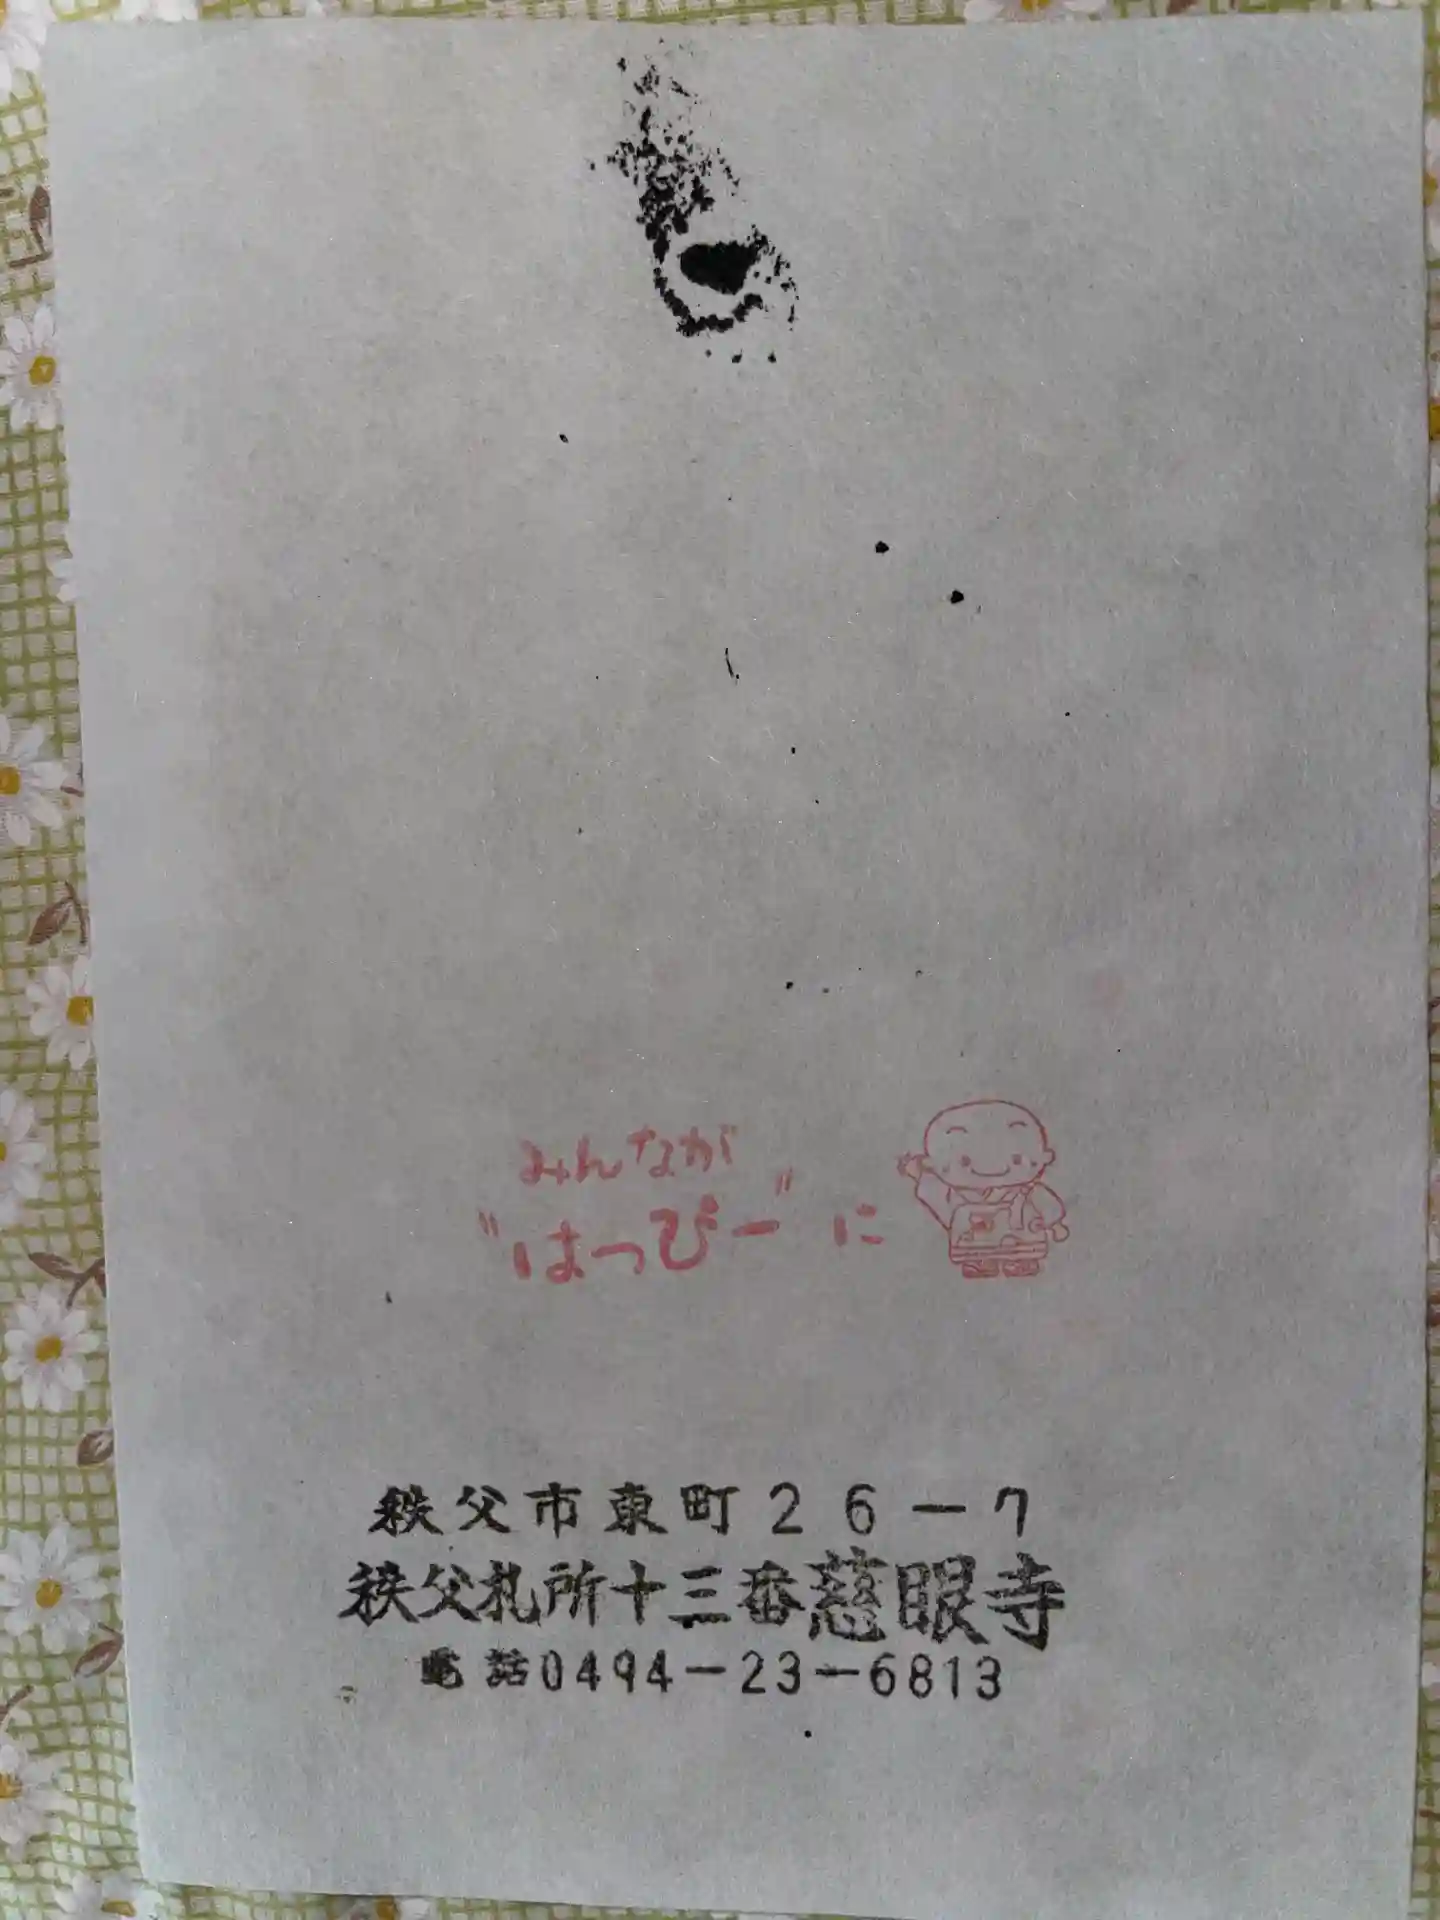 みんなが
"はっぴー"に
秩父市東町26-7
秩父札所十三番慈眼寺
電話0494-23-6813